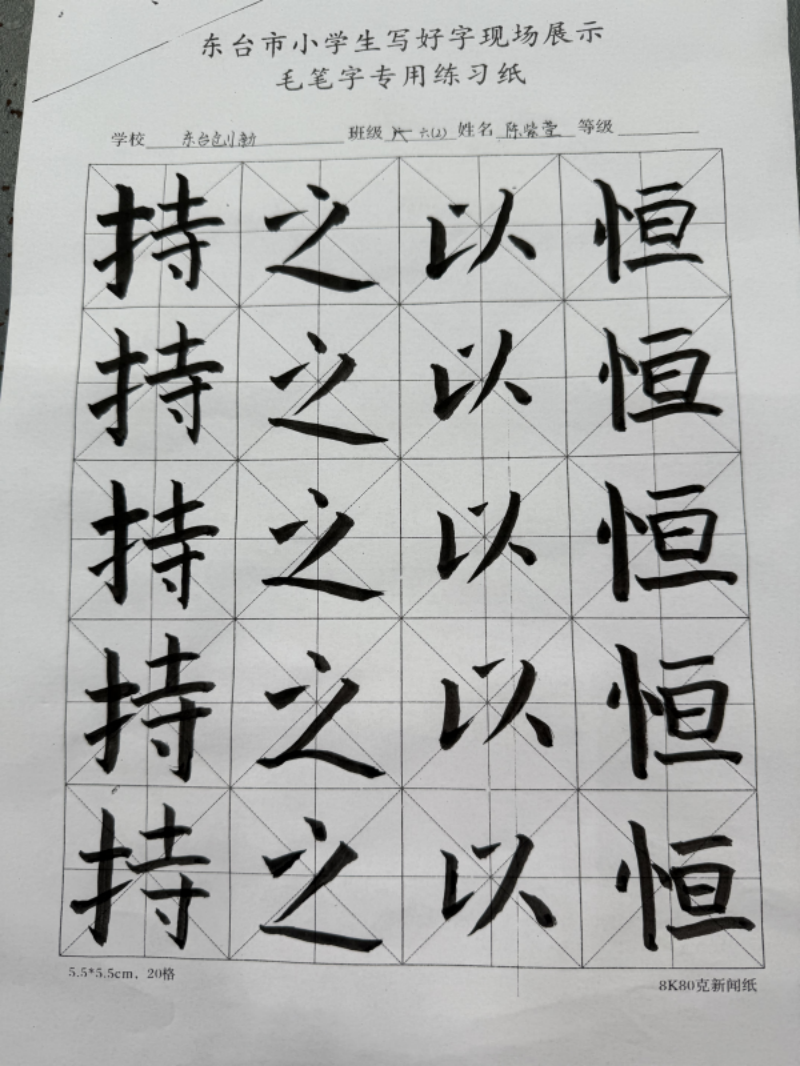 东台市小学生写好字现场展示
毛笔字专用练习纸
学校 东台 班级 六(2) 姓名 陈紫萱 等级
持之以恒
持之以恒
持之以恒
持之以恒
持之以恒
5.5*5.5cm，20格 8K80克新闻纸